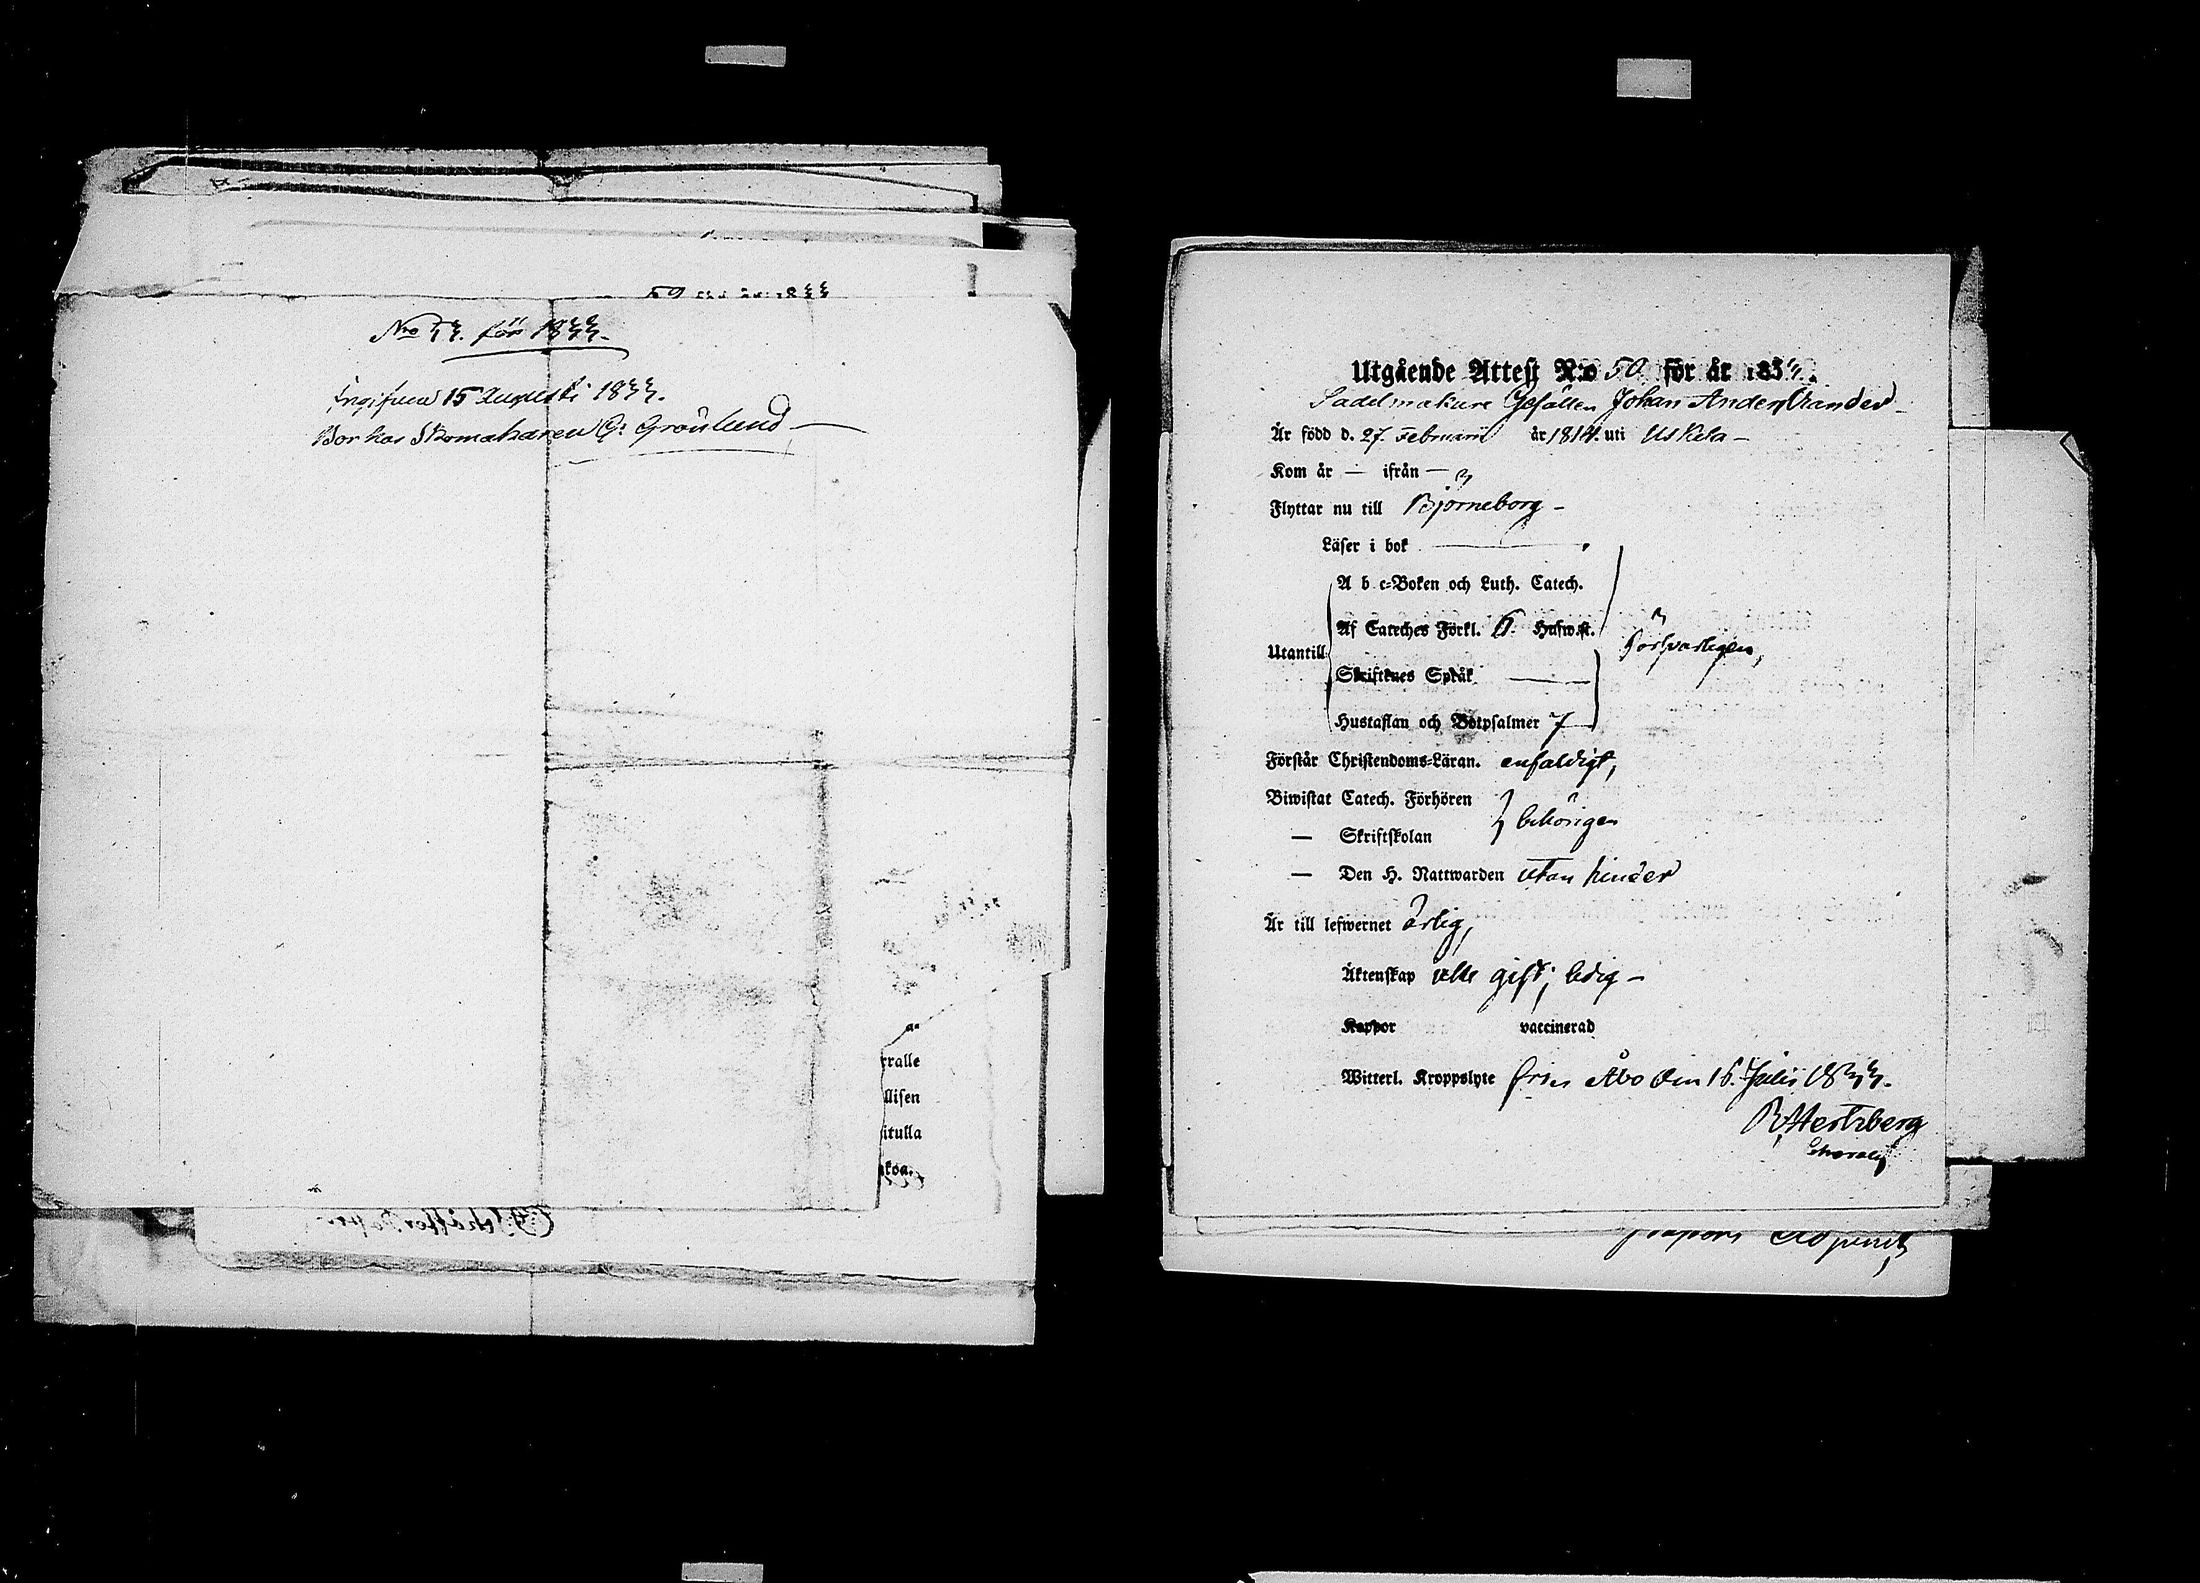 59 för år 1844
No 57. för 1844.
Ingifven 15 Augusti 1844.
Bor hos Skomakaren G: Grönlund
rralle
llisen
itulla
koa.
Utgående Attest N:o 50 för år 1844.
Sadelmakare Gesällen Johan Ander
Är född d. 27. Februarii år 1814. uti Uskela —
Kom år — ifrån —
Flyttar nu till Björneborg —
Läser i bok
A b c-Boken och Luth. Catech.
Af Cateches Förkl. Hufw.st.
Utantill
försvarligen,
Skriftenes Språk
Hustaflan och Botpsalmer 7
Förstår Christendoms-Läran. enfaldigt,
Biwistat Catech. Förhören
behörigen
— Skriftskolan
— Den H. Nattwarden utan hinder
Är till lefwernet ärlig,
Äktenskap icke gift; ledig —
Koppor vaccinerad
Witterl. Kroppslyte fri. Åbo den 16. Julii 1844.
Hertzberg